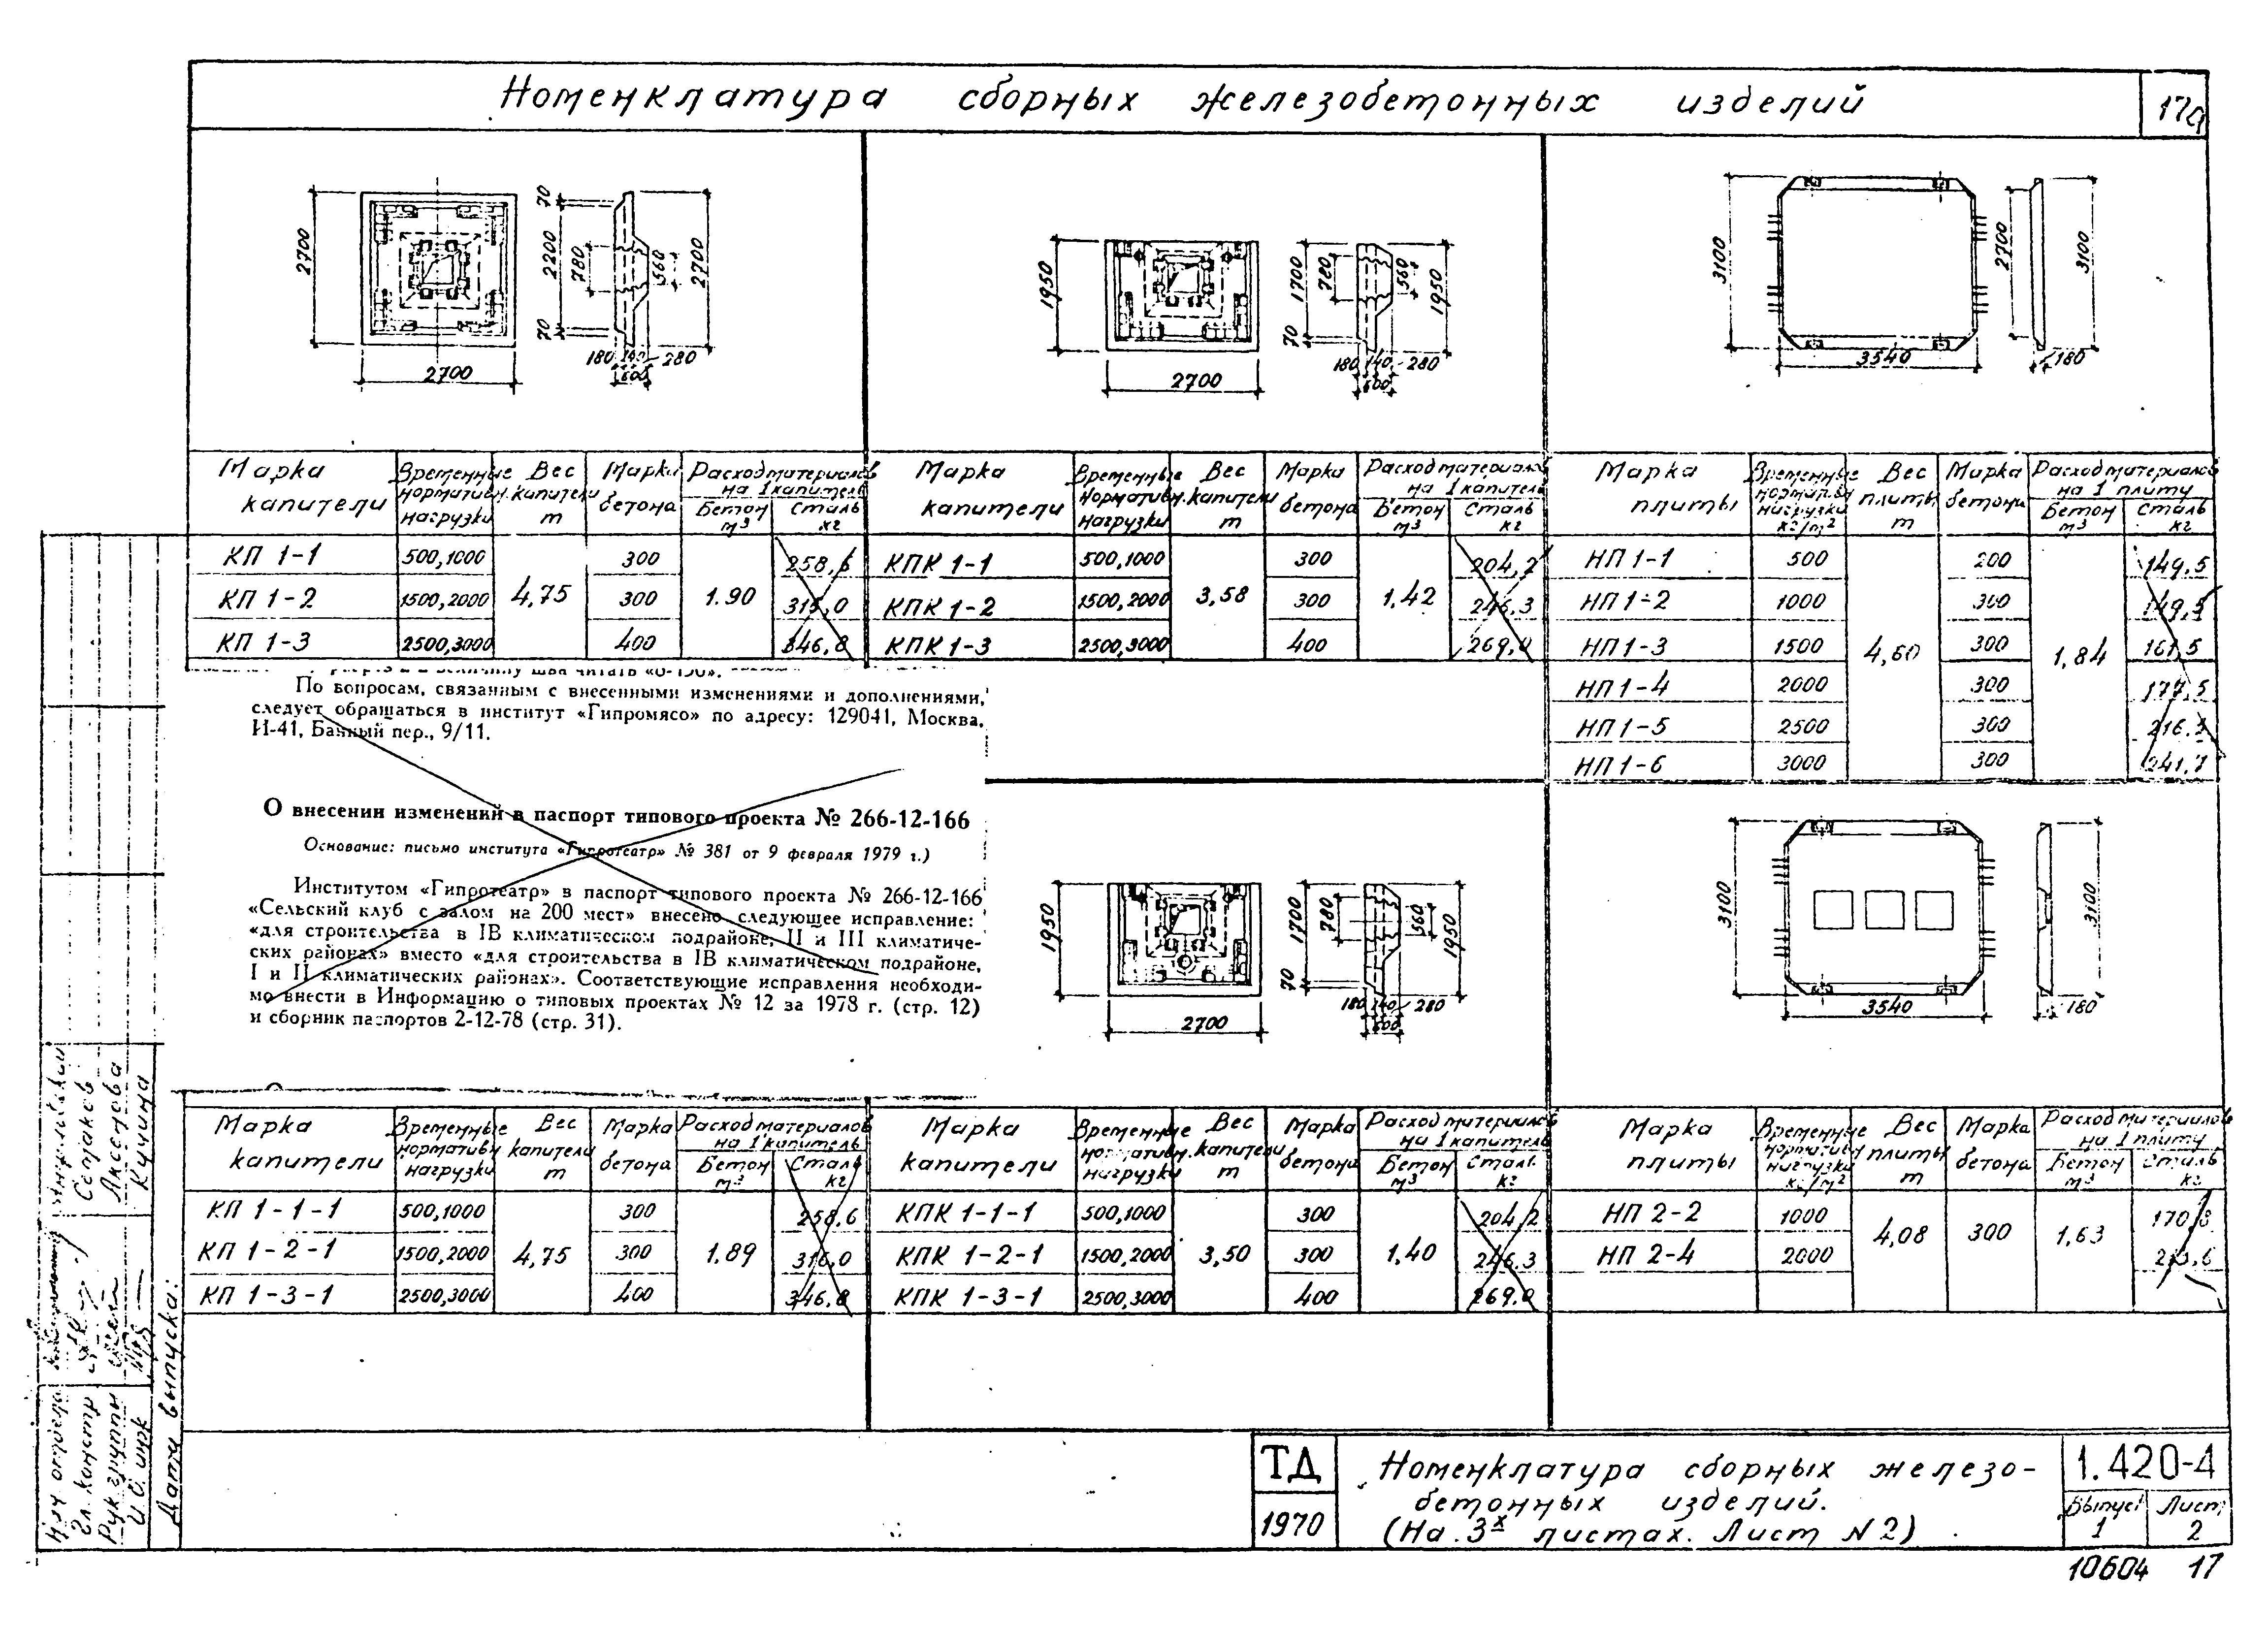 Номенклатура сборных железобетонных изделий
17а
2700
2700
70
2200
70
780
560
2700
180 140 280
600
1950
2700
1700
70
780
560
1950
180 140 280
600
3100
3540
2700
3100
180
Марка капители
Временные нормативн. нагрузки
Вес капители т
Марка бетона
Расход материалов на 1 капитель
Бетон м³
Сталь кг
КП 1-1 500,1000 4,75 300 1.90 258,6
КП 1-2 1500,2000 300 316,0
КП 1-3 2500,3000 400 346,8
Марка капители
Временные нормативн. нагрузки
Вес капители т
Марка бетона
Расход материалов на 1 капитель
Бетон м³
Сталь кг
КПК 1-1 500,1000 3,58 300 1,42 204,2
КПК 1-2 1500,2000 300 246,3
КПК 1-3 2500,3000 400 269,0
Марка плиты
Временные нормативн нагрузки кг/м²
Вес плиты т
Марка бетона
Расход материалов на 1 плиту
Бетон м³
Сталь кг
НП 1-1 500 4,60 200 1,84 149,5
НП 1-2 1000 300 149,5
НП 1-3 1500 300 161,5
НП 1-4 2000 300 177,5
НП 1-5 2500 300 216,3
НП 1-6 3000 300 241,7
шва читать «0-150».
По вопросам, связанным с внесенными изменениями и дополнениями,
следует обращаться в институт «Гипромясо» по адресу: 129041, Москва,
И-41, Банный пер., 9/11.
О внесении изменений в паспорт типового проекта № 266-12-166
Основание: письмо института «Гипротеатр» № 381 от 9 февраля 1979 г.)
Институтом «Гипротеатр» в паспорт типового проекта № 266-12-166
«Сельский клуб с залом на 200 мест» внесено следующее исправление:
«для строительства в IВ климатическом подрайоне, II и III климатиче-
ских районах» вместо «для строительства в IВ климатическом подрайоне,
I и II климатических районах». Соответствующие исправления необходи-
мо внести в Информацию о типовых проектах № 12 за 1978 г. (стр. 12)
и сборник паспортов 2-12-78 (стр. 31).
1950
2700
1700
70
780
560
1950
180 140 280
600
3100
3540
3100
180
Марка капители
Временные нормативн нагрузки
Вес капители т
Марка бетона
Расход материалов на 1 капитель
Бетон м³
Сталь кг
КП 1-1-1 500,1000 4,75 300 1.89 258,6
КП 1-2-1 1500,2000 300 316,0
КП 1-3-1 2500,3000 400 346,8
Марка капители
Временные нормативн. нагрузки
Вес капители т
Марка бетона
Расход материалов на 1 капитель
Бетон м³
Сталь кг
КПК 1-1-1 500,1000 3,50 300 1,40 204,2
КПК 1-2-1 1500,2000 300 246.3
КПК 1-3-1 2500,3000 400 269.0
Марка плиты
Временные нормативн нагрузки кг/м²
Вес плиты т
Марка бетона
Расход материалов на 1 плиту
Бетон м³
Сталь кг
НП 2-2 1000 4,08 300 1,63 170,8
НП 2-4 2000 213,6
Нач отдела
Гл. констр Сетјаков
Рук. группы Аксенова
И.О. инж Кучина
Дата выпуска:
ТД
1970
Номенклатура сборных железо-
бетонных изделий.
(На 3х листах. Лист N 2)
1.420-4
Выпуск 1
Лист 2
10604 17